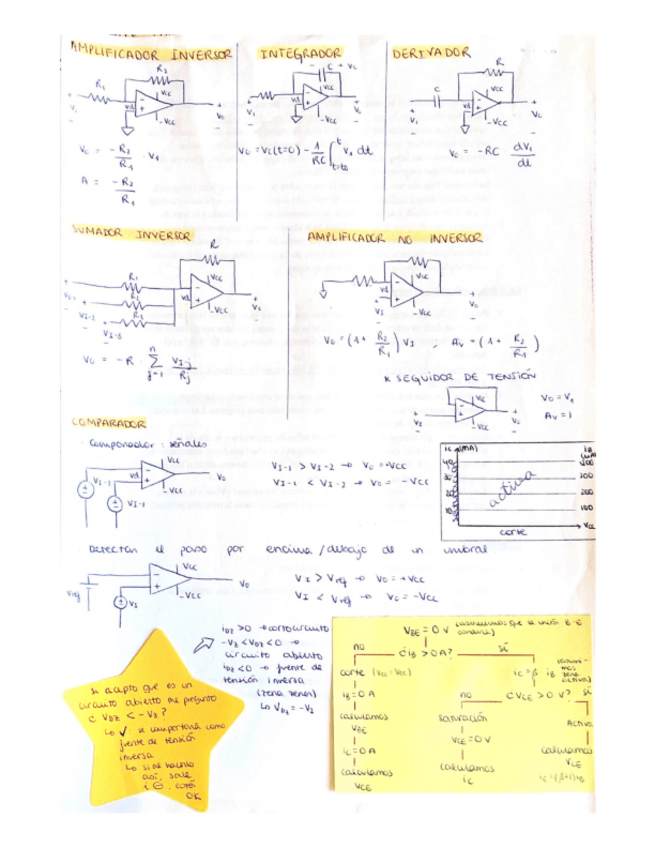 AMPLIFICADOR INVERSOR
R2
R1
Vcc
vd
-Vcc
V1
Vo
Vo = -R2/R1 · V1
A = -R2/R1
INTEGRADOR
- C + Vc
Vcc
vd
-Vcc
V1
Vo
Vo = Vc(t=0) - 1/RC ∫ t t=to V1 dt
DERIVADOR
R
C
Vcc
vd
-Vcc
V1
Vo
Vo = -RC dV1/dt
SUMADOR INVERSOR
R
R1
R2
R3
Vcc
vd
-Vcc
VI-1
VI-2
VI-3
Vo
Vo = -R · n Σ j=1 VI-j/Rj
AMPLIFICADOR NO INVERSOR
Vcc
vd
-Vcc
VI
Vo
Vo = (1+ R2/R1) VI ; Av = (1+ R2/R1)
* SEGUIDOR DE TENSIÓN
VI
Vo
Vo = V1
Av = 1
COMPARADOR
· Comparador: señales
Vcc
vd
-Vcc
Vo
VI-2
VI-1
VI-1 > VI-2 → Vo = Vcc
VI-1 < VI-2 → Vo = -Vcc
ic (mA)
400
300
200
100
saturación
activa
corte
VCE
· Detectan el paso por encima / debajo de un umbral
Vcc
-Vcc
Vref
VI
Vo
VI > Vref → Vo = +Vcc
VI < Vref → Vo = -Vcc
iDZ > 0 → cortocircuito
-VZ < VDZ < 0 →
circuito abierto
iDZ < 0 → fuente de
tensión inversa
(zona zener)
↳ VDZ = -VZ
si acepto que es un
circuito abierto me pregunto
¿ VDZ < -VZ ?
↳ ✓ se comportará como
fuente de tensión
inversa
↳ si se
así, sale
i ⊖, está
OK
VBE = 0 V (asumimos que la unión B-E
conduce)
¿ iB > 0 A?
no
sí
corte (
iB = 0 A
calculamos
VBE
iC = 0 A
calculamos
VCE
iC = β iB (asumi-
mos
zona
activa)
¿ VCE > 0 V?
no
sí
saturación
VCE = 0 V
calculamos
iC
Activa
calculamos
VCE
iC = (β+1) iB